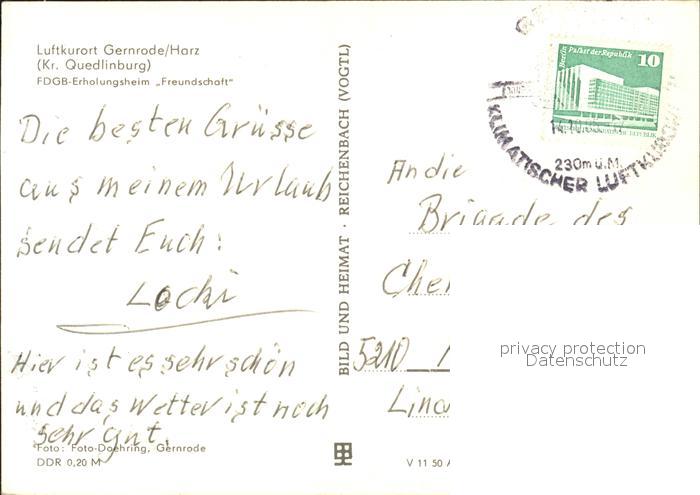 Luftkurort Gernrode/Harz
(Kr. Quedlinburg)
FDGB-Erholungsheim „Freundschaft"
Die besten Grüsse
aus meinem Urlaub
sendet Euch:
Locki
Hier ist es sehr schön
und das Wetter ist noch
sehr gut.
Foto: Foto-Doehring, Gernrode
DDR 0,20 M
BILD UND HEIMAT · REICHENBACH (VOGTL)
V 11 50
Berlin Palast der Republik
10
230m ü.M.
KLIMATISCHER LUFTKURORT
An die
Brigade des
5210
privacy protection
Datenschutz